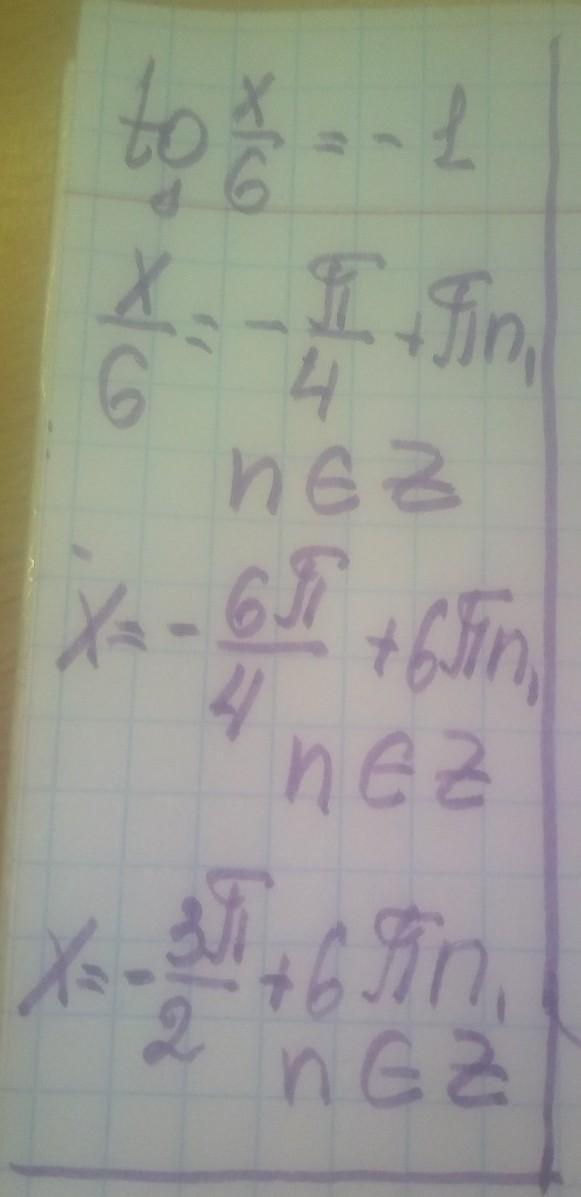 tg x/6 = - 1
x/6 = - π/4 + πn,
n ∈ Z
x = - 6π/4 + 6πn,
n ∈ Z
x = - 3π/2 + 6πn,
n ∈ Z